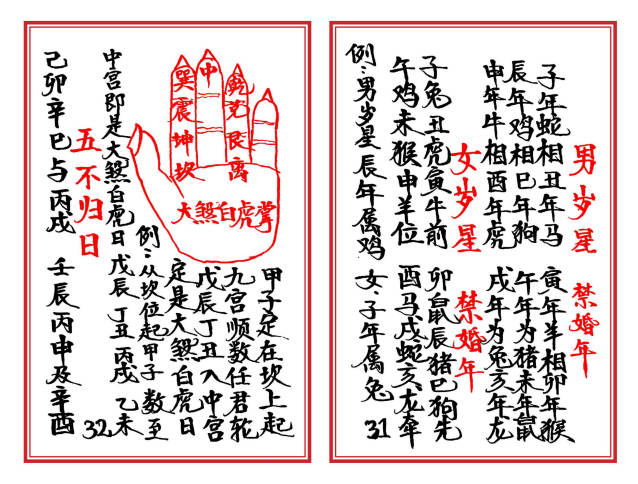 男岁星 禁婚年
子年蛇相丑年马 寅年羊相卯年猴
辰年鸡相巳年狗 午年为猪未年鼠
申年牛相酉年虎 戌年为兔亥年龙
女岁星 禁婚年
子兔丑虎寅牛前 卯鼠辰猪巳狗先
午鸡未猴申羊位 酉马戌蛇亥龙牵
例：男岁星辰年属鸡 女：子年属兔
31
大煞白虎掌
乾兑艮离
中
巽震坤坎
甲子定在坎上起
九宫顺数任君轮
戊辰丁丑入中宫
定是大煞白虎日
例：从坎位起甲子 数至
中宫即是大煞白虎日 戊辰 丁丑 丙戌 乙未
五不归日
己卯辛巳与丙戌 壬辰丙申及辛酉
32